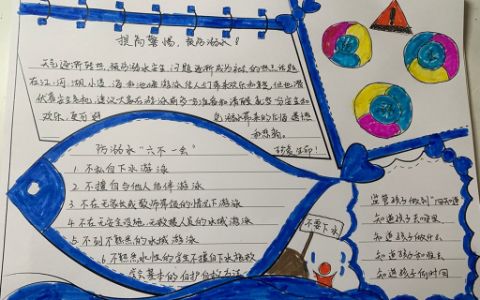 提高警惕，预防溺水！
天气逐渐转热，预防溺水安全问题逐渐成为
在江、河、湖、小溪、海和池塘游泳给人们带来欢乐和
伏着安全
欢乐，更可
溺水带来的
珍爱生命！
防溺水“六不一会”
1 不私自下水游泳
2 不擅自与他人结伴游泳
3 不在无家长或教师带领的情况下游泳
4 不在无安全设施、无救援人员的水域游泳
5 不到不熟悉的水域游泳
6 不熟悉水性的学生不擅自下水施救
学会基本的自护自救方法
不要下水
监管孩子做到“四知道”
知道孩子去哪里
知道孩子做什么
知道孩子和谁去
知道孩子何时回